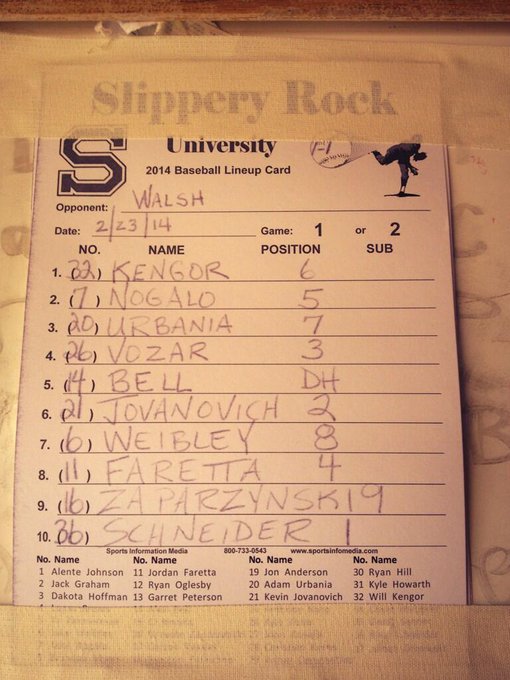 Slippery Rock
S University
2014 Baseball Lineup Card
Opponent: WALSH
Date: 2/23/14 Game: 1 or 2
NO. NAME POSITION SUB
1. (32) KENGOR 6
2. (7) NOGALO 5
3. (20) URBANIA 7
4. (26) VOZAR 3
5. (14) BELL DH
6. (21) JOVANOVICH 2
7. (6) WEIBLEY 8
8. (11) FARETTA 4
9. (16) ZAPARZYNSKI 9
10. (36) SCHNEIDER 1
Sports Information Media 800-733-0543 www.sportsinfomedia.com
No. Name No. Name No. Name No. Name
1 Alente Johnson 11 Jordan Faretta 19 Jon Anderson 30 Ryan Hill
2 Jack Graham 12 Ryan Oglesby 20 Adam Urbania 31 Kyle Howarth
3 Dakota Hoffman 13 Garret Peterson 21 Kevin Jovanovich 32 Will Kengor